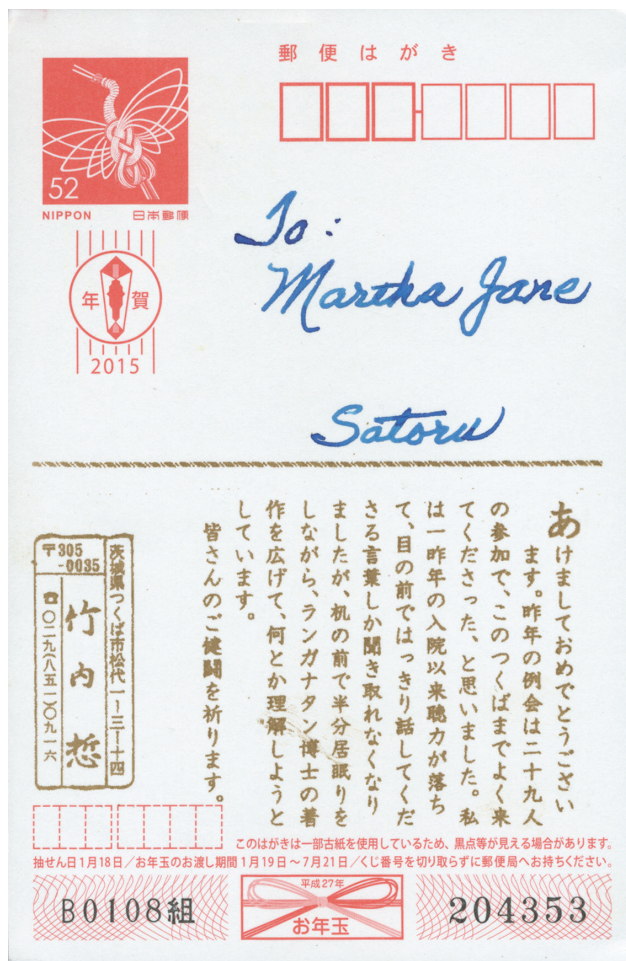 郵便はがき
52
NIPPON 日本郵便
年賀
2015
To:
Martha Jane
Satoru
あけましておめでとうござい
ます。昨年の例会は二十九人
の参加で、このつくばまでよく来
てくださった、と思いました。私
は一昨年の入院以来聴力が落ち
て、目の前ではっきり話してくだ
さる言葉しか聞き取れなくなり
ましたが、机の前で半分居眠りを
しながら、ランガナタン博士の著
作を広げて、何とか理解しようと
しています。
皆さんのご健闘を祈ります。
茨城県つくば市松代一ー三ー十四
〒305
-0035
竹内悊
☎〇二九(八五一)〇九一六
このはがきは一部古紙を使用しているため、黒点等が見える場合があります。
抽せん日1月18日/お年玉のお渡し期間1月19日～7月21日/くじ番号を切り取らずに郵便局へお持ちください。
B0108組
平成27年
お年玉
204353